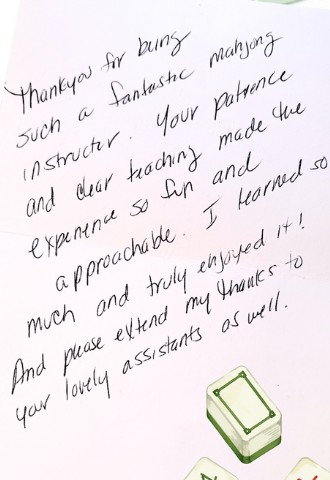 Thankyou for being
such a fantastic mahjong
instructor. Your patience
and clear teaching made the
experience so fun and
approachable. I learned so
much and truly enjoyed it!
And please extend my thanks to
your lovely assistants as well.